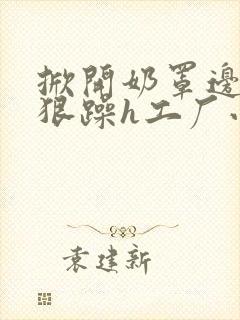 掀開奶罩邊
狠躁h工厂
袁建新